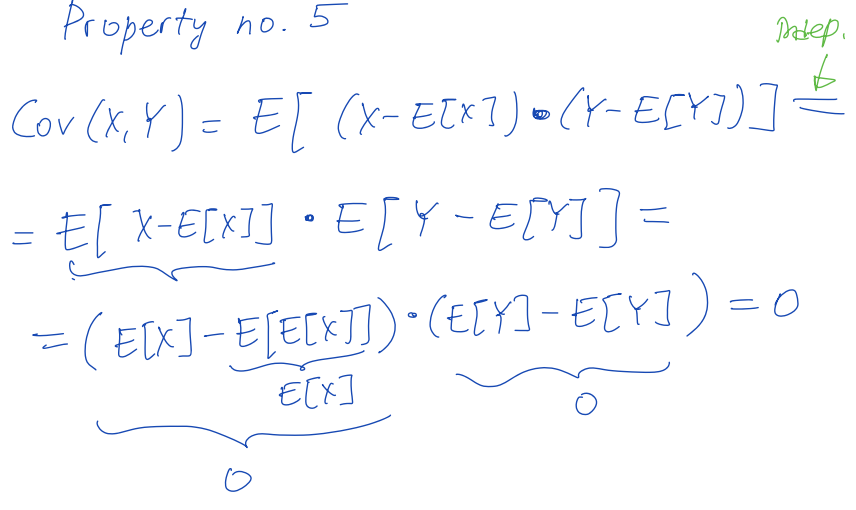 Property no. 5
Indep.
Cov(X,Y) = E[(X-E[X])•(Y-E[Y])] =
= E[X-E[X]] • E[Y-E[Y]] =
= (E[X]-E[E[X]])•(E[Y]-E[Y]) = 0
E[X]
0
0